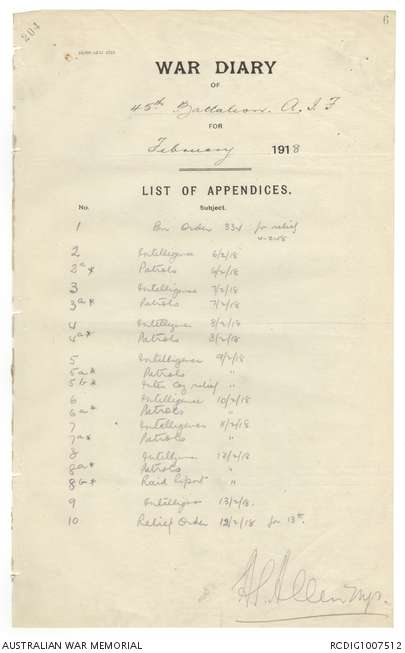 204
6
WAR DIARY
OF
45th Battalion. A.I.F
FOR
February 1918
LIST OF APPENDICES.
No. Subject.
1 Bn Order 334 for relief
4-2-18
2 Intelligence 6/2/18
2a* Patrols 6/2/18
3 Intelligence 7/2/18
3a* Patrols 7/2/18
4 Intelligence 8/2/18
4a* Patrols 8/2/18
5 Intelligence 9/2/18
5a* Patrols "
5b* Inter Coy relief "
6 Intelligence 10/2/18
6a* Patrols "
7 Intelligence 11/2/18
7a* Patrols "
8 Intelligence 12/2/18
8a* Patrols "
8b* Raid Report "
9 Intelligence 13/2/18.
10 Relief Order 12/2/18 for 13th.
Allen Major.
AUSTRALIAN WAR MEMORIAL
RCDIG1007512